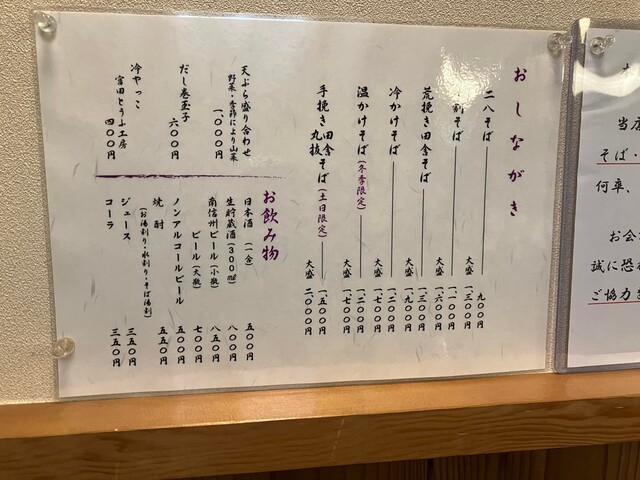 おしながき
二八そば 九〇〇円
大盛 一、三〇〇円
割そば 一、一〇〇円
大盛 一、六〇〇円
荒挽き田舎そば 一、三〇〇円
大盛 一、九〇〇円
冷かけそば 一、二〇〇円
大盛 一、七〇〇円
温かけそば(冬季限定) 一、二〇〇円
大盛 一、七〇〇円
手挽き田舎そば
丸抜(土日限定) 一、五〇〇円
大盛 二、〇〇〇円
天ぷら盛り合わせ
野菜・季節により山菜
一、〇〇〇円
だし巻玉子
六〇〇円
冷やっこ
宮田とうふ工房
四〇〇円
お飲み物
日本酒(一合) 五〇〇円
生貯蔵酒(300㎖) 八〇〇円
南信州ビール(小瓶) 八五〇円
ビール(大瓶) 七〇〇円
ノンアルコールビール 五〇〇円
焼酎 五五〇円
(お湯割り・水割り・そば湯割)
ジュース 三五〇円
コーラ 三五〇円
当店
そば・
何卒、
お会
誠に恐
ご協力